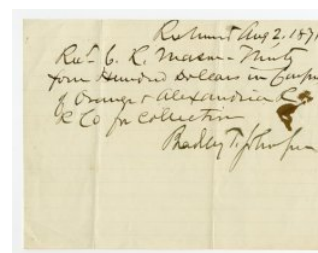 Richmond Aug 2. 1871
Recd C. R. Mason - Ninety
four Hundred Dollars in Coupons
of Orange & Alexandria R
R Co for Collection
Bradley T. Johnson